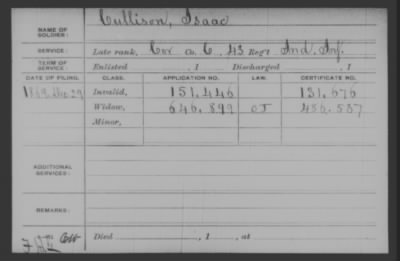 NAME OF SOLDIER: Cullison, Isaac
SERVICE: Late rank, Cor Co. C, 43 Reg't Ind. Inf.
TERM OF SERVICE: Enlisted , 1 Discharged , 1
DATE OF FILING. CLASS. APPLICATION NO. LAW. CERTIFICATE NO.
1869. Dec 29 Invalid, 151.446 131.676
Widow, 646.899 OJ 456.537
Minor,
ADDITIONAL SERVICES:
REMARKS:
Died , 1 , at